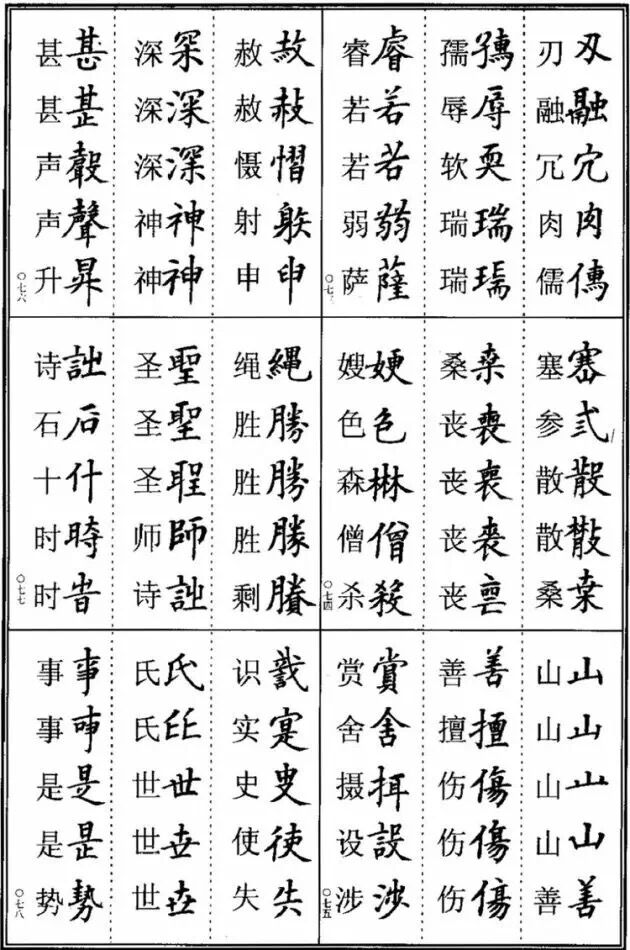 刃刄
融融
冗宂
肉肉
儒
孺
辱辱
软耎
瑞瑞
瑞
睿睿
若若
若若
弱
萨薩
塞
参弍
散
散
桑桒
桑桒
丧喪
丧
丧
丧
嫂㛐
色色
森
僧僧
杀殺
〇七四
山山
山山
山山
山山
善善
善善
擅擅
伤傷
伤傷
伤傷
赏賞
舍舍
摄
设設
涉涉
〇七五
赦赦
赦
慑慴
射
申申
深
深深
深深
神神
神神
甚甚
甚
声
声聲
升昇
〇七六
绳繩
胜勝
胜勝
胜勝
剩
圣聖
圣聖
圣
师師
诗詩
诗詩
石石
十什
时時
时旹
〇七七
识
实寔
史
使使
失失
氏氏
氏
世世
世丗
世
事事
事
是是
是昰
势勢
〇七八